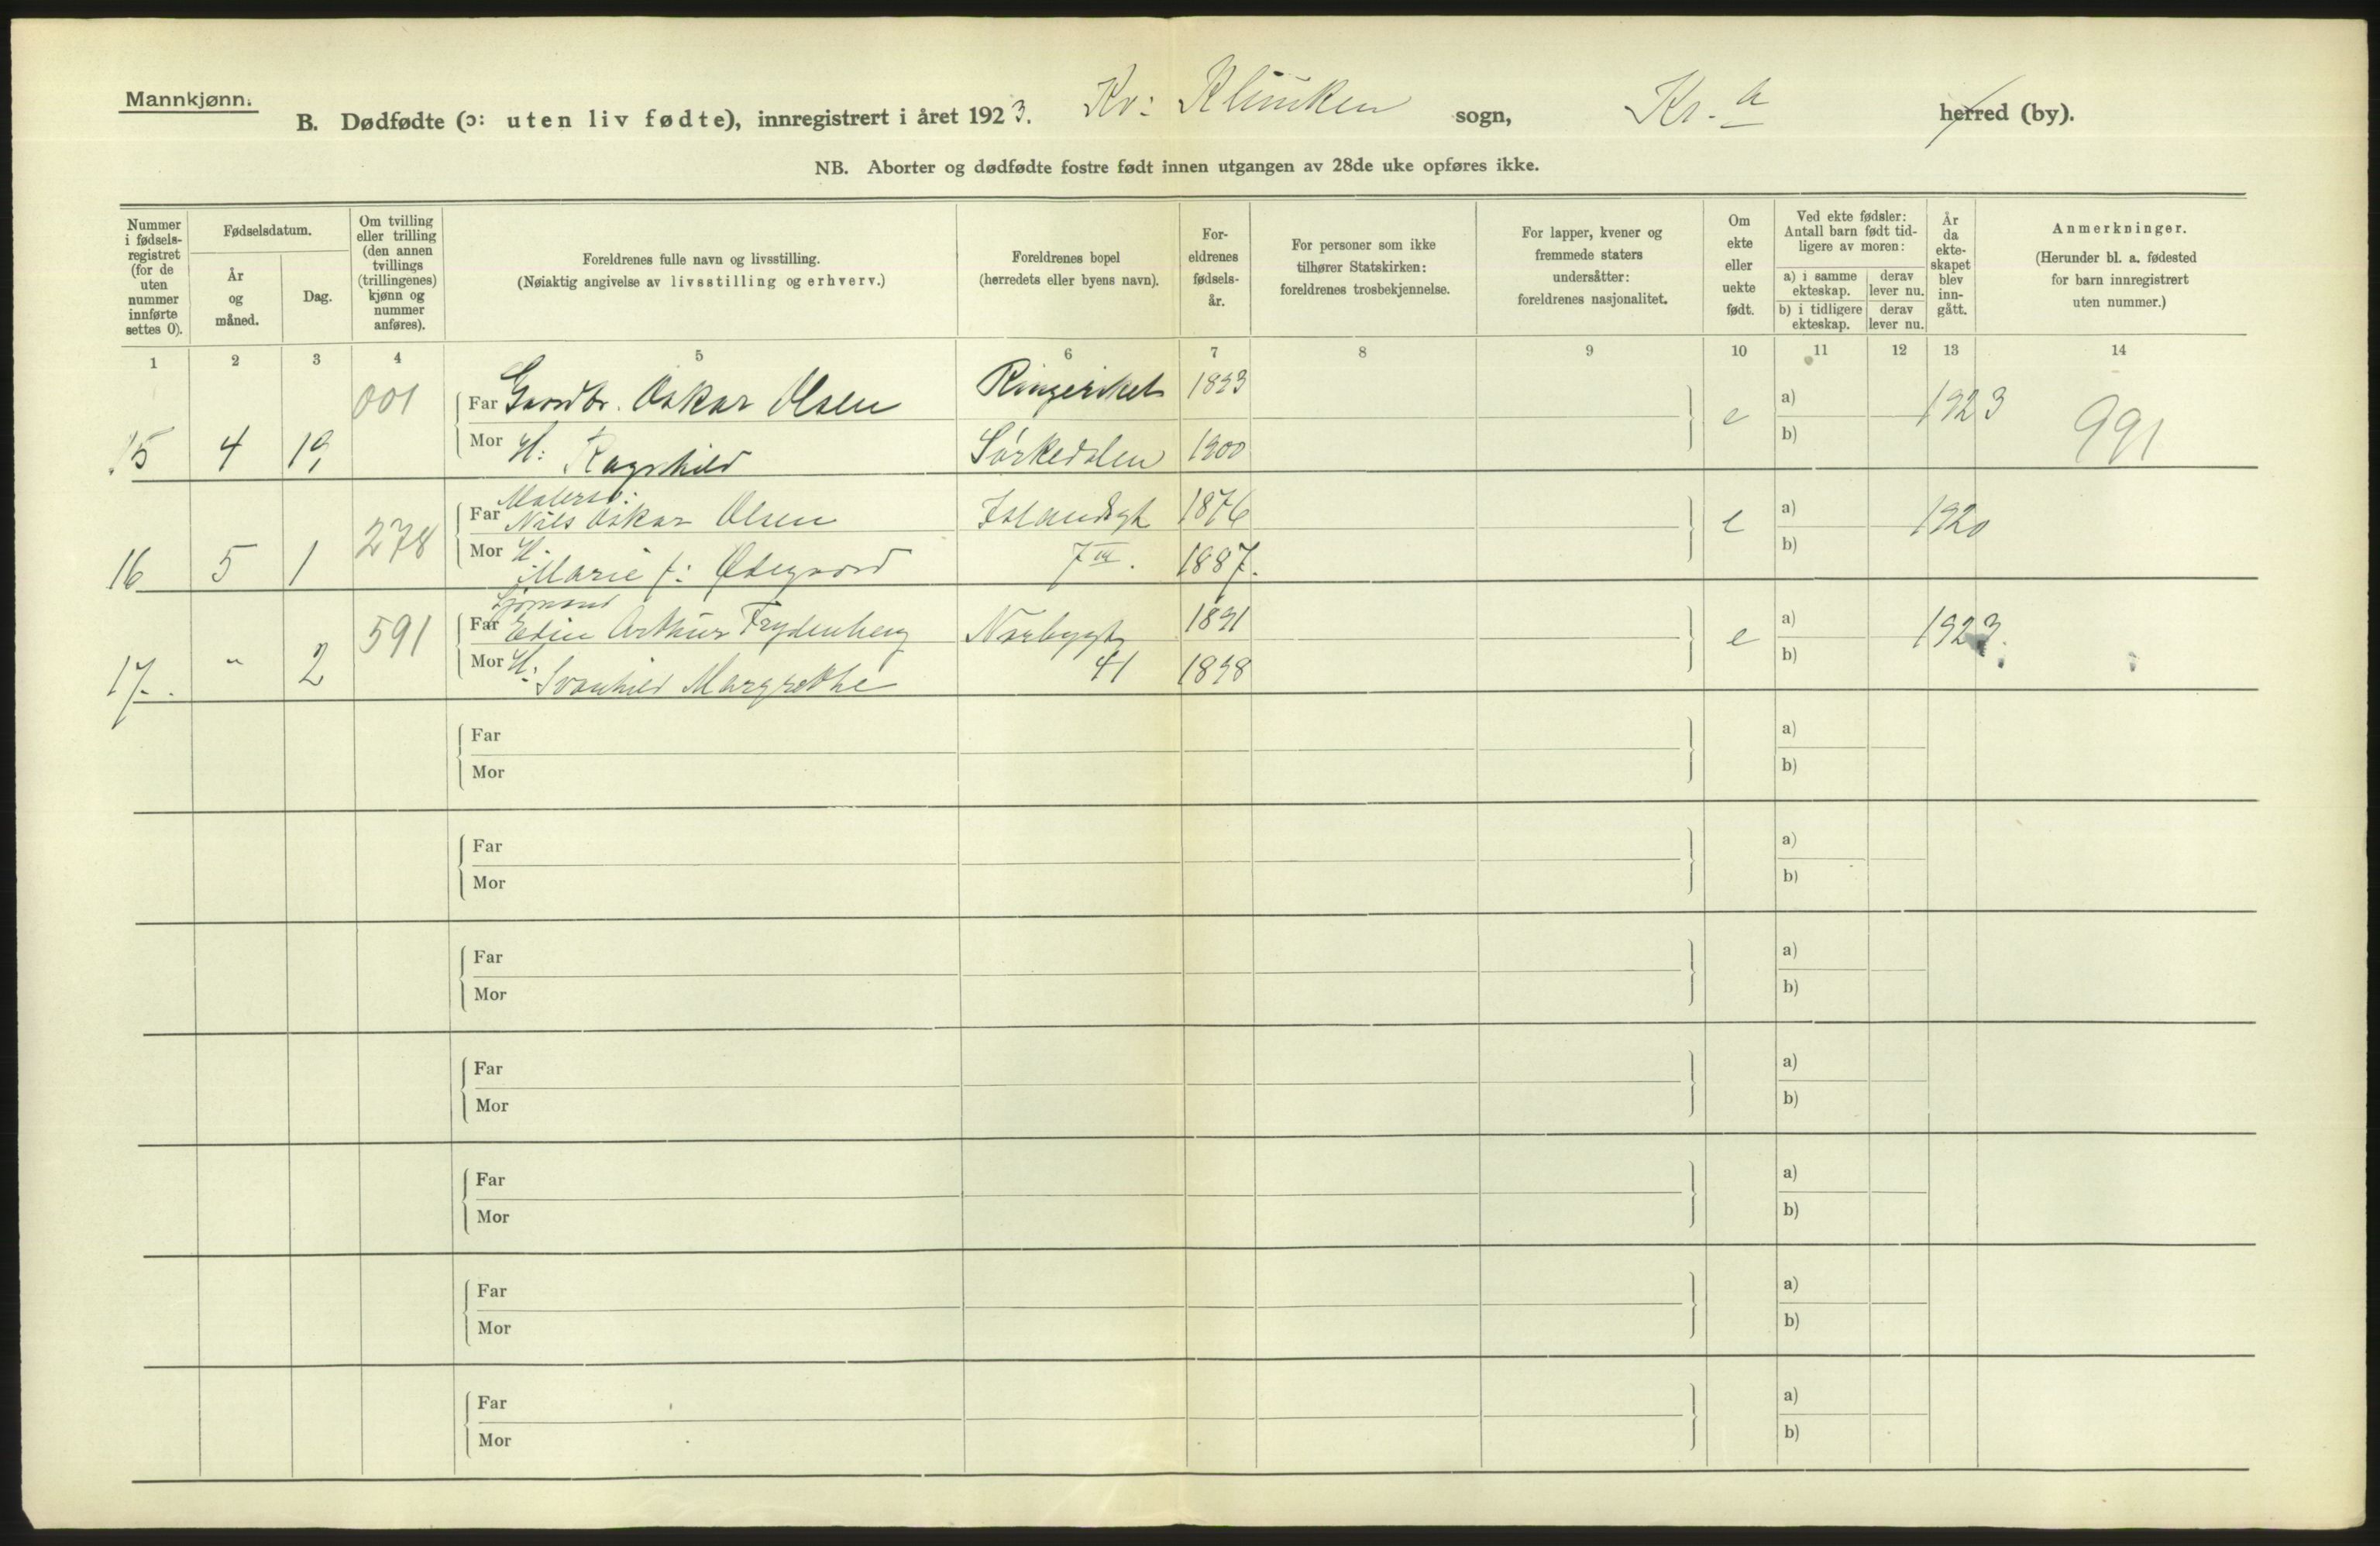 Mannkjønn.
B. Dødfødte (ɔ: uten liv fødte), innregistrert i året 1923. Kv: Kliniken sogn, Kr.a herred (by).
NB. Aborter og dødfødte fostre født innen utgangen av 28de uke opføres ikke.
Nummer i fødsels-registret (for de uten nummer innførte settes 0).
Fødselsdatum.
År og måned.
Dag.
Om tvilling eller trilling (den annen tvillings (trillingenes) kjønn og nummer anføres).
Foreldrenes fulle navn og livsstilling.
(Nøiaktig angivelse av livsstilling og erhverv.)
Foreldrenes bopel
(herredets eller byens navn).
For-eldrenes fødsels-år.
For personer som ikke tilhører Statskirken: foreldrenes trosbekjennelse.
For lapper, kvener og fremmede staters undersåtter: foreldrenes nasjonalitet.
Om ekte eller uekte født.
Ved ekte fødsler: Antall barn født tid-ligere av moren:
a) i samme ekteskap. derav lever nu.
b) i tidligere ekteskap. derav lever nu.
År da ekte-skapet blev inn-gått.
Anmerkninger.
(Herunder bl. a. fødested for barn innregistrert uten nummer.)
1 2 3 4 5 6 7 8 9 10 11 12 13 14
15 4 19 001 Far Gaardbr. Oskar Olsen Ringeriket 1893 e a) 1923 991
Mor H: Ragnhild Sørkedalen 1900 b)
Malersv:
16 5 1 278 Far Nils Oskar Olsen Islandsgt 1876 e a) 1920
Mor H. Marie f: Ødegaard 7 III. 1887. b)
Sjømand
17. " 2 591 Far Edin Arthur Frydenberg Norbygt 1891 e a) 1923.
Mor H. Svanhild Margrethe 41 1898 b)
Far a)
Mor b)
Far a)
Mor b)
Far a)
Mor b)
Far a)
Mor b)
Far a)
Mor b)
Far a)
Mor b)
Far a)
Mor b)